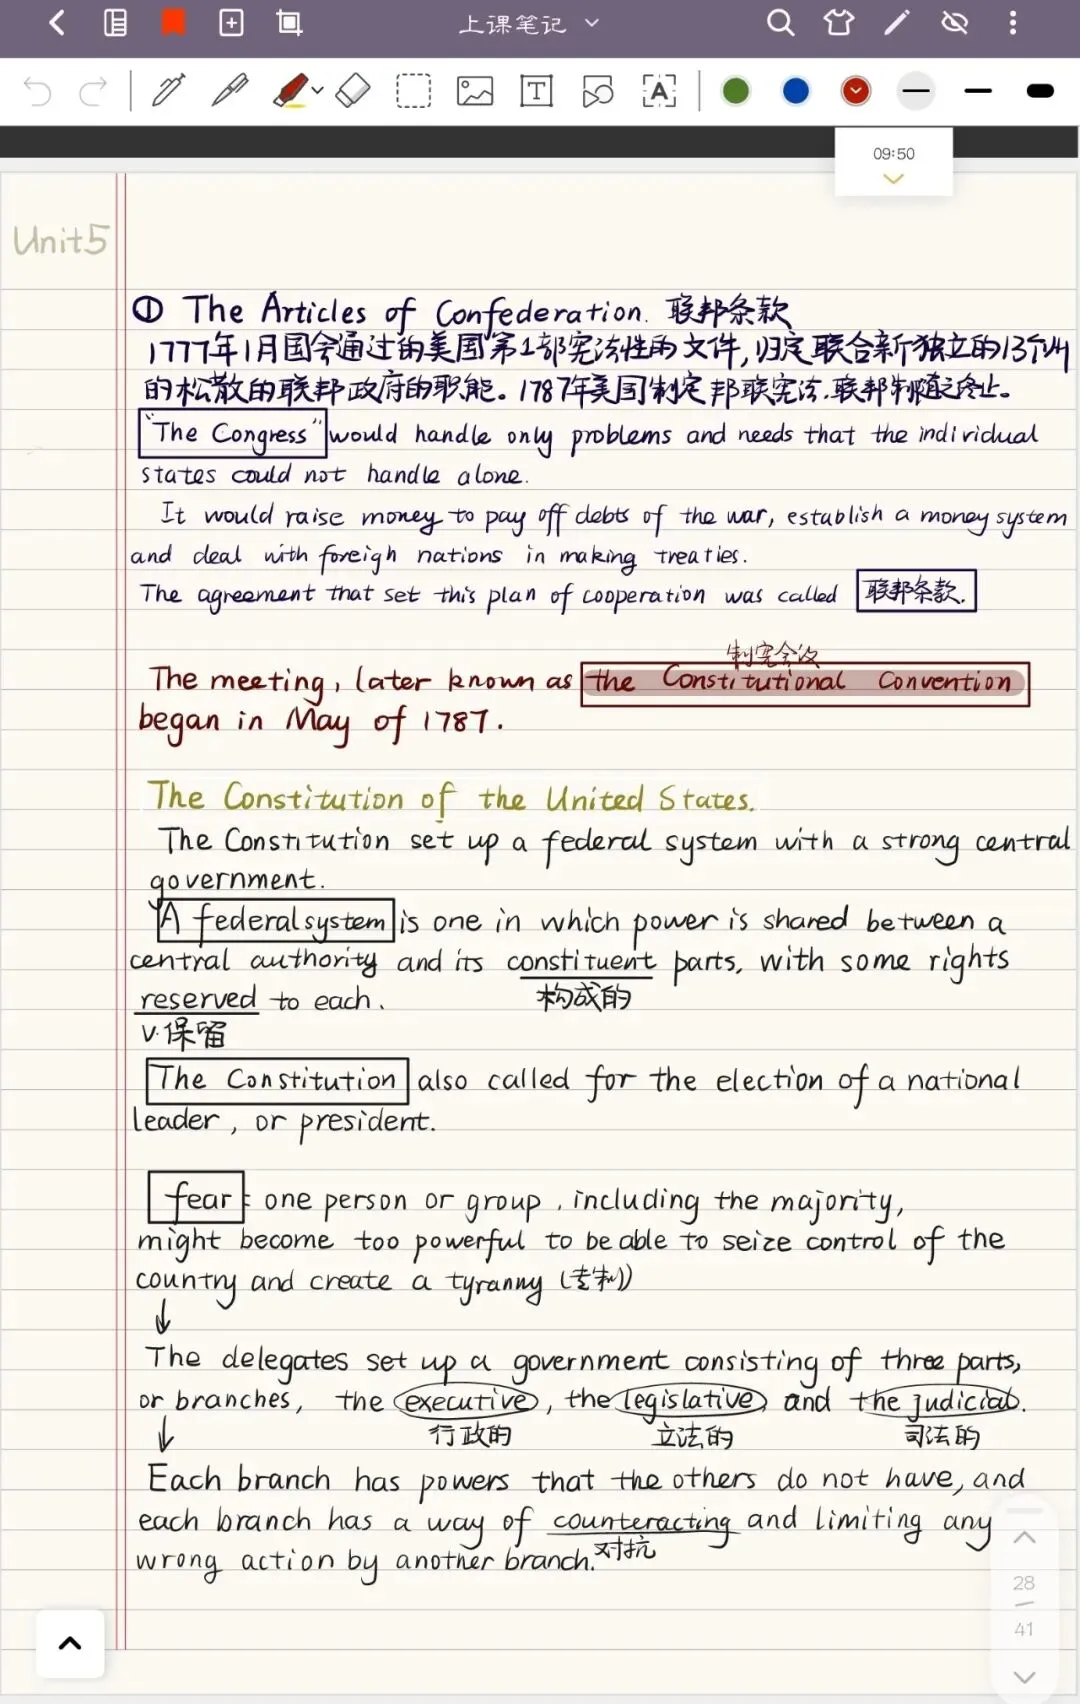 上课笔记
T
A
09:50
Unit5
① The Articles of Confederation. 联邦条款
1777年1月国会通过的美国第1部宪法性的文件,归定联合新独立的13个州
的松散的联邦政府的职能。1787年美国制定邦联宪法.联邦制随之终止。
"The Congress" would handle only problems and needs that the individual
states could not handle alone.
It would raise money to pay off debts of the war, establish a money system
and deal with foreigh nations in making treaties.
The agreement that set this plan of cooperation was called 联邦条款.
制宪会议
The meeting, later known as the Constitutional Convention
began in May of 1787.
The Constitution of the United States.
The Constitution set up a federal system with a strong central
government.
A federal system is one in which power is shared between a
central authority and its constituent parts, with some rights
构成的
reserved to each.
v.保留
The Constitution also called for the election of a national
leader, or president.
fear: one person or group, including the majority,
might become too powerful to be able to seize control of the
country and create a tyranny (专制)
↓
The delegates set up a government consisting of three parts,
or branches, the executive, the legislative, and the judicial.
行政的 立法的 司法的
↓
Each branch has powers that the others do not have, and
each branch has a way of counteracting and limiting any
对抗
wrong action by another branch.
28
41